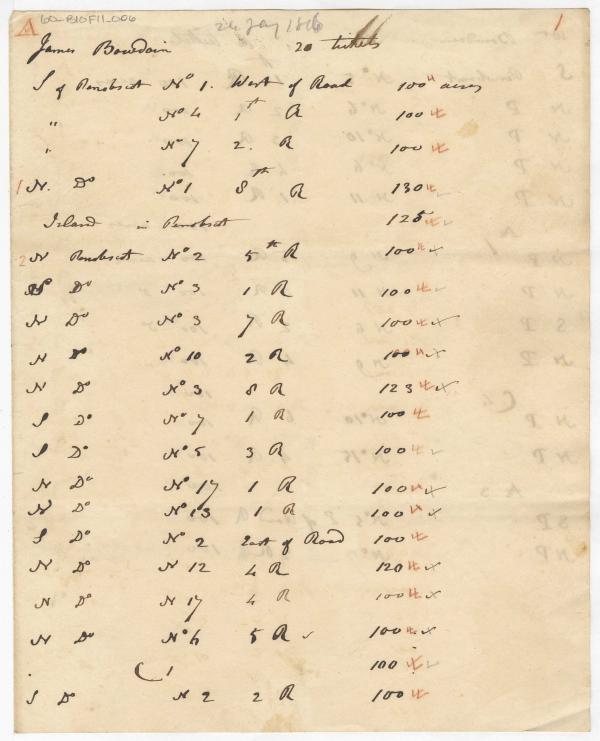 A 60-B10F11-006 26 Jay 1816 1
James Bowdoin 20 tickets
S of Penobscot No 1. West of Road 100 acres
" No 4 1th R 100
" No 7 2. R 100
1 N. Do No 1 8th R 130
Island in Penobscot 125
2 N Penobscot No 2 5th R 100
S Do No 3 1 R 100
N Do No 3 7 R 100
N Do No 10 2 R 100
N Do No 3 8 R 123
S Do No 7 1 R 100
S Do No 5 3 R 100
N Do No 17 1 R 100
N Do No 13 1 R 100
S Do No 2 East of Road 100
N Do N 12 4 R 120
N Do N 17 4 R 100
N Do No 6 5 R 100
C 1 100
S Do N 2 2 R 100